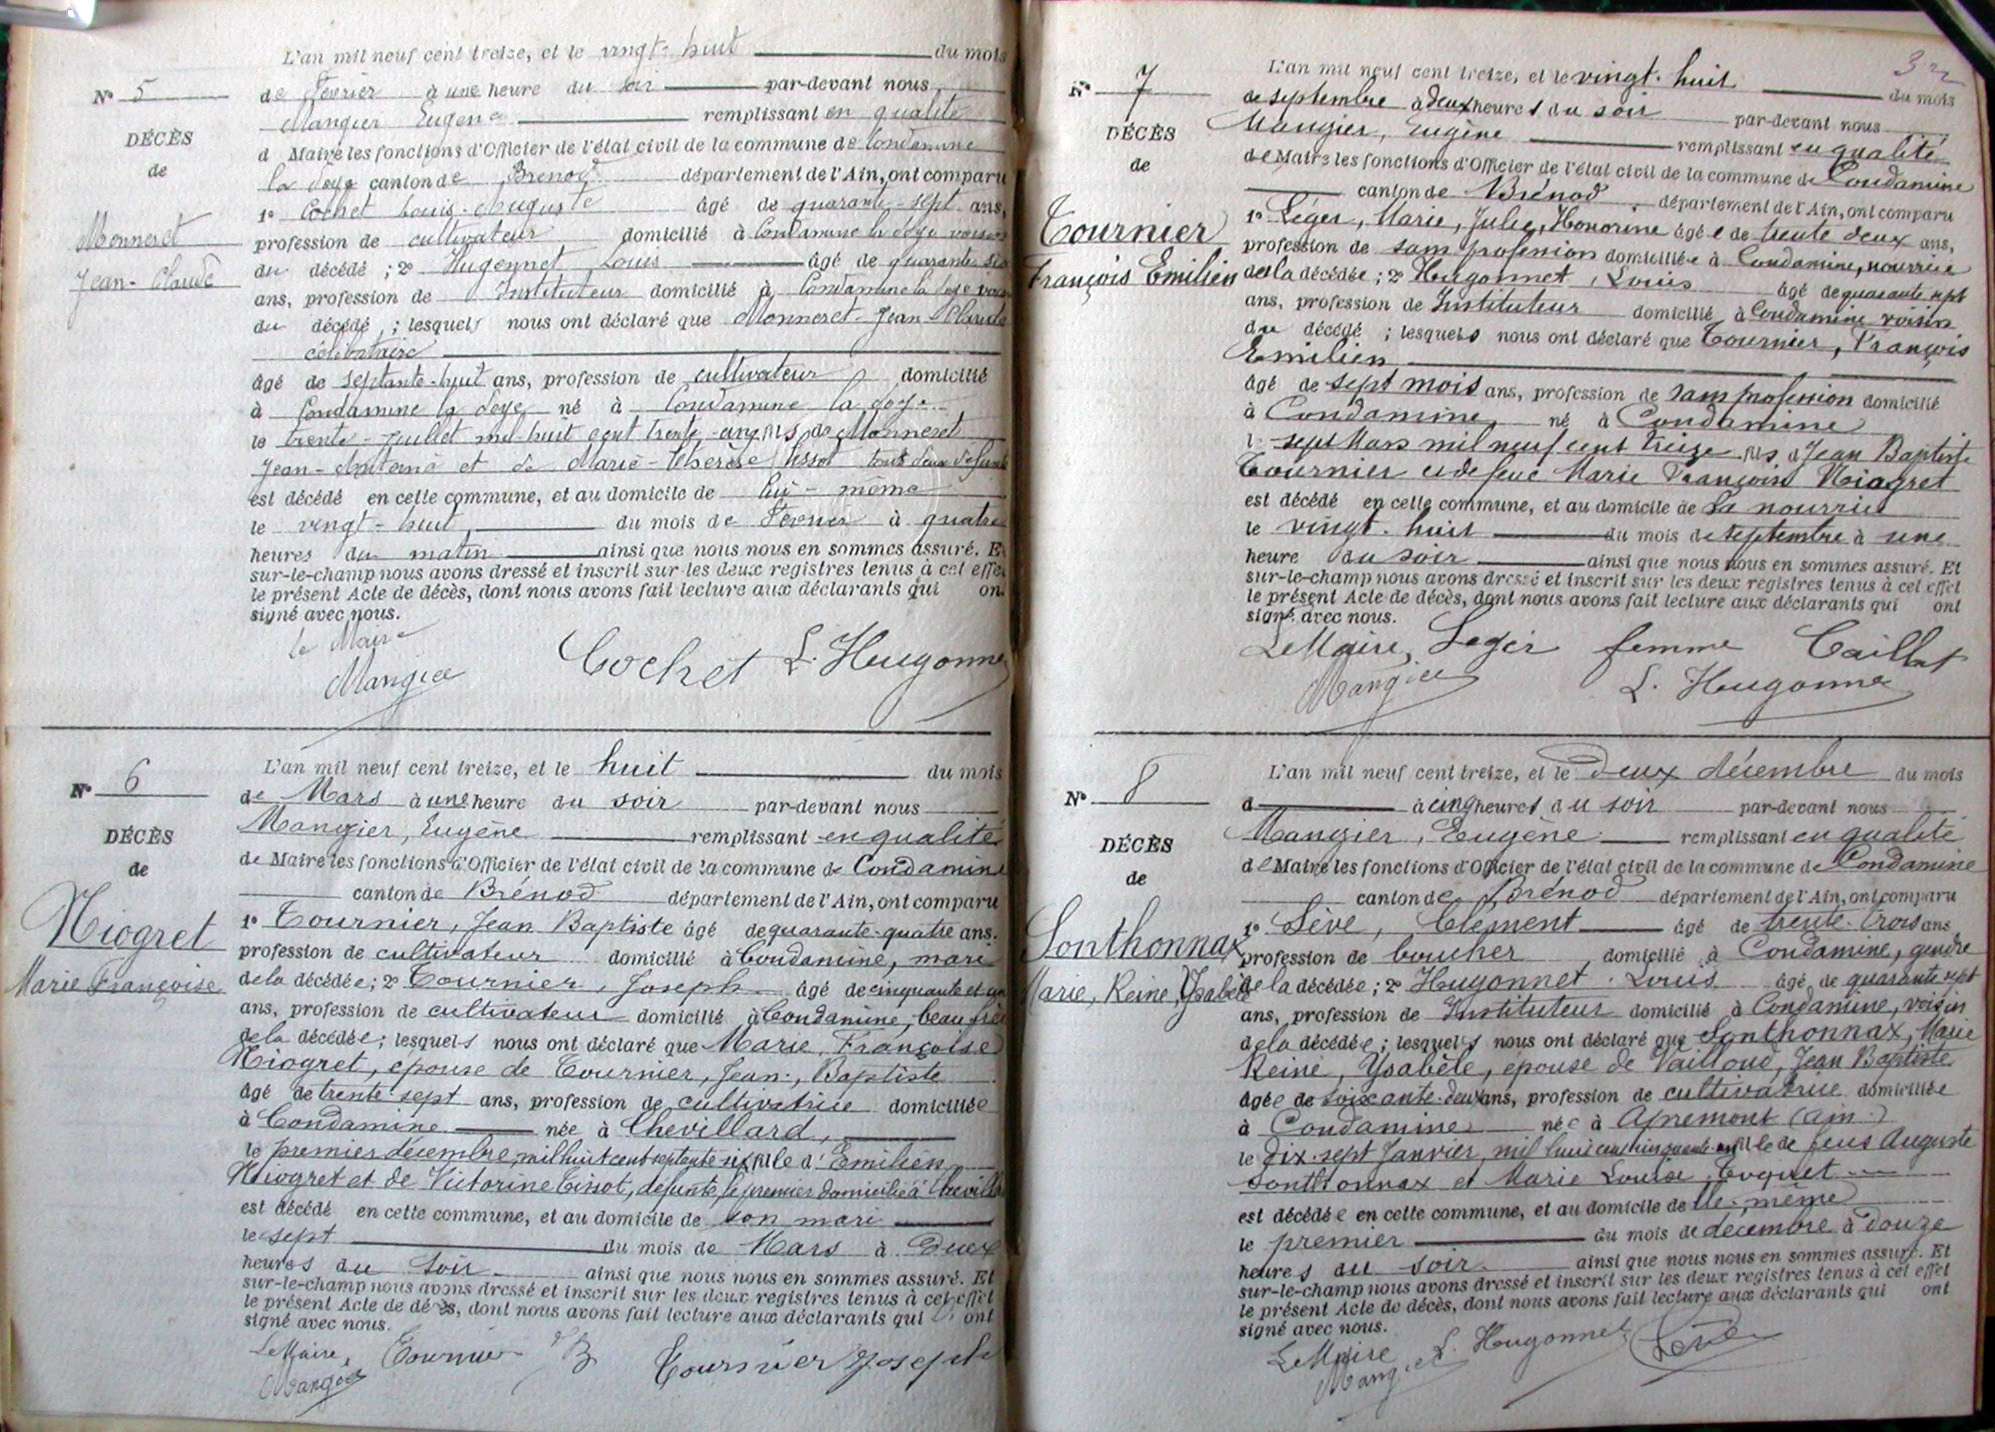 L'an mil neuf cent treize, et le vingt-huit du mois
N° 5
de Février à une heure du soir par-devant nous
Mangier Eugène remplissant en qualité
DÉCÈS
d Maire les fonctions d'Officier de l'état civil de la commune de Condamine
de
la doye canton de Brénod département de l'Ain, ont comparu
1° Cochet Louis-Auguste âgé de quarante-sept ans,
Monneret
profession de cultivateur domicilié à Condamine la doye voisin
Jean-Claude
du décédé ; 2° Hugonnet Louis âgé de quarante six
ans, profession de Instituteur domicilié à Condamine la doye voisin
du décédé ; lesquels nous ont déclaré que Monneret Jean Claude
célibataire
âgé de septante-huit ans, profession de cultivateur domicilié
à Condamine la doye né à Condamine la doye
le trente-juillet mil huit cent trente fils de Monneret
Jean- et de Marie-Thérèse Tissot tous deux défunts
est décédé en cette commune, et au domicile de lui-même
le vingt-huit du mois de Février à quatre
heures du matin ainsi que nous nous en sommes assuré. Et
sur-le-champ nous avons dressé et inscrit sur les deux registres tenus à cet effet
le présent Acte de décès, dont nous avons fait lecture aux déclarants qui ont
signé avec nous.
le Maire
Mangier Cochet L. Hugonnet
L'an mil neuf cent treize, et le huit du mois
N° 6
de Mars à une heure du soir par-devant nous
Mangier, Eugène remplissant en qualité
DÉCÈS
de Maire les fonctions d'Officier de l'état civil de la commune de Condamine
de
canton de Brénod département de l'Ain, ont comparu
Niogret
1° Tournier, Jean Baptiste âgé de quarante-quatre ans.
profession de cultivateur domicilié à Condamine, mari
Marie Françoise
de la décédée ; 2° Tournier, Joseph âgé de cinquante et un
ans, profession de cultivateur domicilié à Condamine, beau frère
de la décédée ; lesquels nous ont déclaré que Marie, Françoise
Niogret, épouse de Tournier, Jean, Baptiste
âgé de trente sept ans, profession de cultivatrice domiciliée
à Condamine née à Chevillard,
le premier décembre, mil huit cent septante six fille d'Emilien
Niogret et de Victorine Tissot, défunte, le premier domicilié à Chevillard
est décédé en cette commune, et au domicile de son mari
le sept du mois de Mars à deux
heures du soir ainsi que nous nous en sommes assuré. Et
sur-le-champ nous avons dressé et inscrit sur les deux registres tenus à cet effet
le présent Acte de décès, dont nous avons fait lecture aux déclarants qui ont
signé avec nous.
Le Maire, Tournier J B Tournier Joseph
Mangier
L'an mil neuf cent treize, et le vingt-huit du mois
N° 7
de septembre à deux heures du soir par-devant nous
Mangier, Eugène remplissant en qualité
DÉCÈS
de Maire les fonctions d'Officier de l'état civil de la commune de Condamine
de
canton de Brénod département de l'Ain, ont comparu
Tournier
1° Léger, Marie, Julie, Honorine âgée de trente deux ans,
profession de sans profession domiciliée à Condamine, nourrice
François Emilien
de la décédée ; 2° Hugonnet, Louis âgé de quarante sept
ans, profession de Instituteur domicilié à Condamine voisin
du décédé ; lesquels nous ont déclaré que Tournier, François
Emilien
âgé de sept mois ans, profession de sans profession domicilié
à Condamine né à Condamine
le sept Mars mil neuf cent treize fils d Jean Baptiste
Tournier et de feue Marie Françoise Niogret
est décédé en cette commune, et au domicile de sa nourrice
le vingt-huit du mois de septembre à une
heure du soir ainsi que nous nous en sommes assuré. Et
sur-le-champ nous avons dressé et inscrit sur les deux registres tenus à cet effet
le présent Acte de décès, dont nous avons fait lecture aux déclarants qui ont
signé avec nous.
Le Maire, Leger femme Caillat
Mangier L. Hugonnet
L'an mil neuf cent treize, et le Deux décembre du mois
N° 8
d à cinq heures du soir par-devant nous
Mangier, Eugène remplissant en qualité
DÉCÈS
de Maire les fonctions d'Officier de l'état civil de la commune de Condamine
de
canton de Brénod département de l'Ain, ont comparu
Sonthonnax
1° Sève, Clément âgé de trente-trois ans
profession de boucher domicilié à Condamine, gendre
Marie, Reine, Ysabèle
de la décédée ; 2° Hugonnet Louis âgé de quarante sept
ans, profession de Instituteur domicilié à Condamine, voisin
de la décédée ; lesquels nous ont déclaré que Sonthonnax, Marie
Reine, Ysabèle, épouse de Vailloud, Jean Baptiste
âgée de soixante-deux ans, profession de cultivatrice domiciliée
à Condamine née à Apremont (Ain)
le dix-sept Janvier, mil huit cent cinquante fille de feus Auguste
Sonthonnax et Marie Louise Toquet
est décédée en cette commune, et au domicile de elle-même
le premier du mois de décembre à douze
heures du soir ainsi que nous nous en sommes assuré. Et
sur-le-champ nous avons dressé et inscrit sur les deux registres tenus à cet effet
le présent Acte de décès, dont nous avons fait lecture aux déclarants qui ont
signé avec nous.
Le Maire L. Hugonnet Sève
Mangier